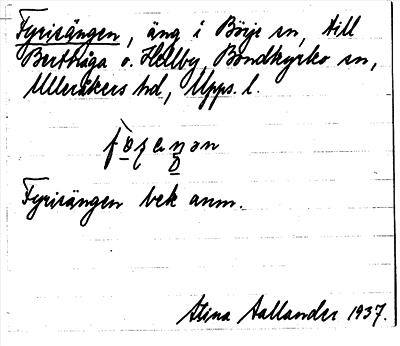 Fyrisängen, äng i Börje sn, till
Bertbåga o. Hällby, Bondkyrko sn,
Ulleråkers hd, Upps. l.
Fyrisängen bek anm.
Stina Aallander 1937.